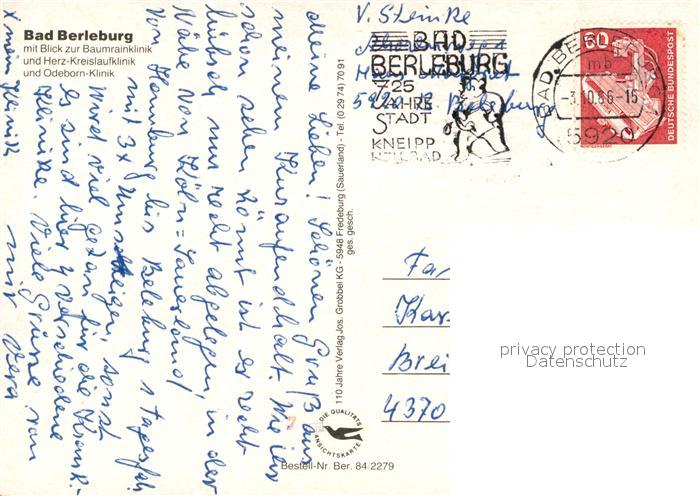 Bad Berleburg
mit Blick zur Baumrainklinik
und Herz-Kreislaufklinik
und Odeborn-Klinik
V. Steinke
5920 Berleburg
BAD
BERLEBURG
725
JAHRE
STADT
KNEIPP
HEILBAD
BAD BERLEBURG
mb
-3.10.86-15
5920
60
DEUTSCHE BUNDESPOST
Meine Lieben! Schönen Gruß aus
meinem Kuraufenthalt. Wie ihr
schon sehen könnt ist es recht
hübsch, nur recht abgelegen, in der
Nähe von Köln = Sauerland/
Von Hamburg bis Beleburg 1 Tagesfahrt
mit 3x Umsteigen, sonst
wird viel getan für die Krank.
es sind hier 4 verschiedene
Kliniken. Viele Grüsse von
mir Vera
x mein Klinik
110 Jahre Verlag Jos. Grobbel KG - 5948 Fredeburg (Sauerland) - Tel. (0 29 74) 70 91
ges. gesch.
Fa
Kar
Brei
4370
privacy protection
Datenschutz
DIE QUALITÄTS
ANSICHTSKARTE
Bestell-Nr. Ber. 84/2279